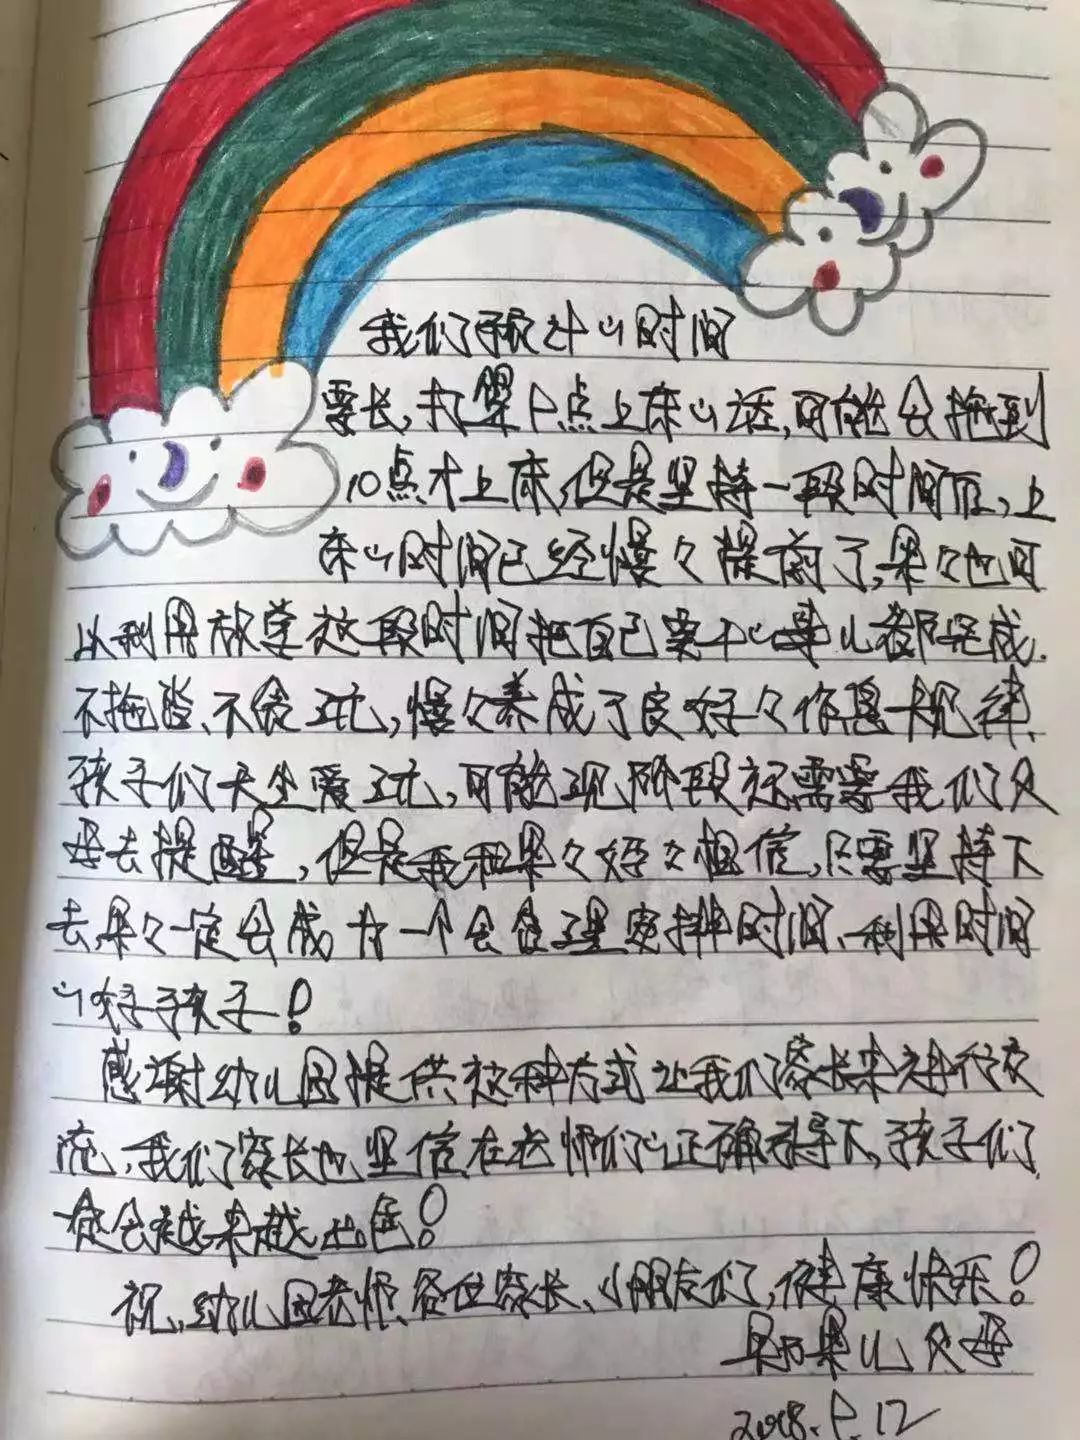 我们预计的时间
要长,打算9点上床的话,可能会拖到
10点才上床,但是坚持一段时间后,上
床的时间已经慢々提前了,果々也可
以利用放学这段时间把自己要干的事儿都完成.
不拖沓、不贪玩,慢々养成了良好々作息规律.
孩子们天生爱玩,可能现阶段还需要我们父
母去提醒,但是我和果々妈々相信,只要坚持下
去,果々一定会成为一个会合理安排时间、利用时间
的好孩子!
感谢幼儿园提供这种方式让我们家长来进行交
流,我们家长也坚信在老师们的正确引导下,孩子们
一定会越来越出色!
祝,幼儿园老师、各位家长、小朋友们,健康快乐!
父母
2018.9.12